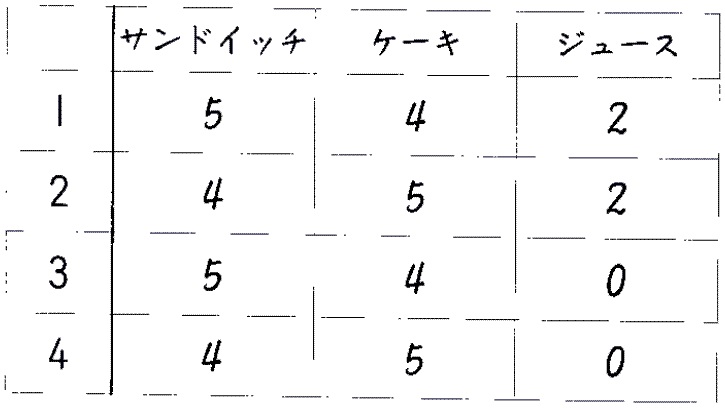 サンドイッチ ケーキ ジュース
1 5 4 2
2 4 5 2
3 5 4 0
4 4 5 0